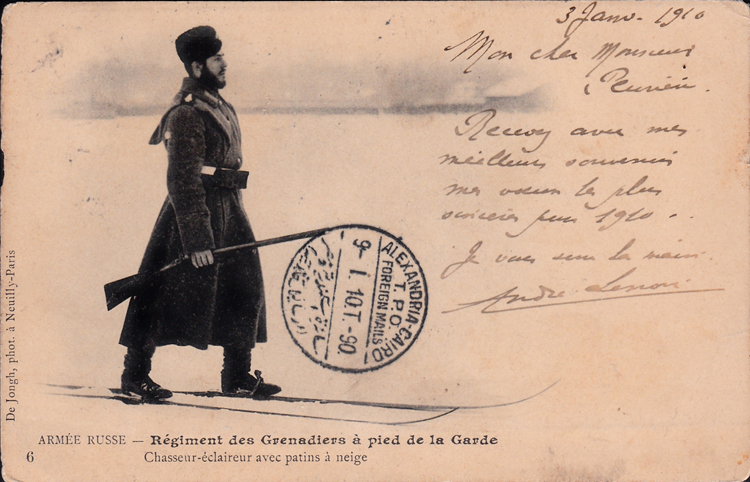 3 Janv. 1910
Mon cher Monsieur
Recevez avec mes
meilleurs souvenirs
mes voeux les plus
sincères pour 1910
Je vous serre la main.
André Lenoir
ALEXANDRIA-CAIRO
T.P.O.
FOREIGN MAILS
9- I 10.T-90
De Jongh, phot. à Neuilly-Paris
ARMÉE RUSSE — Régiment des Grenadiers à pied de la Garde
6 Chasseur-éclaireur avec patins à neige